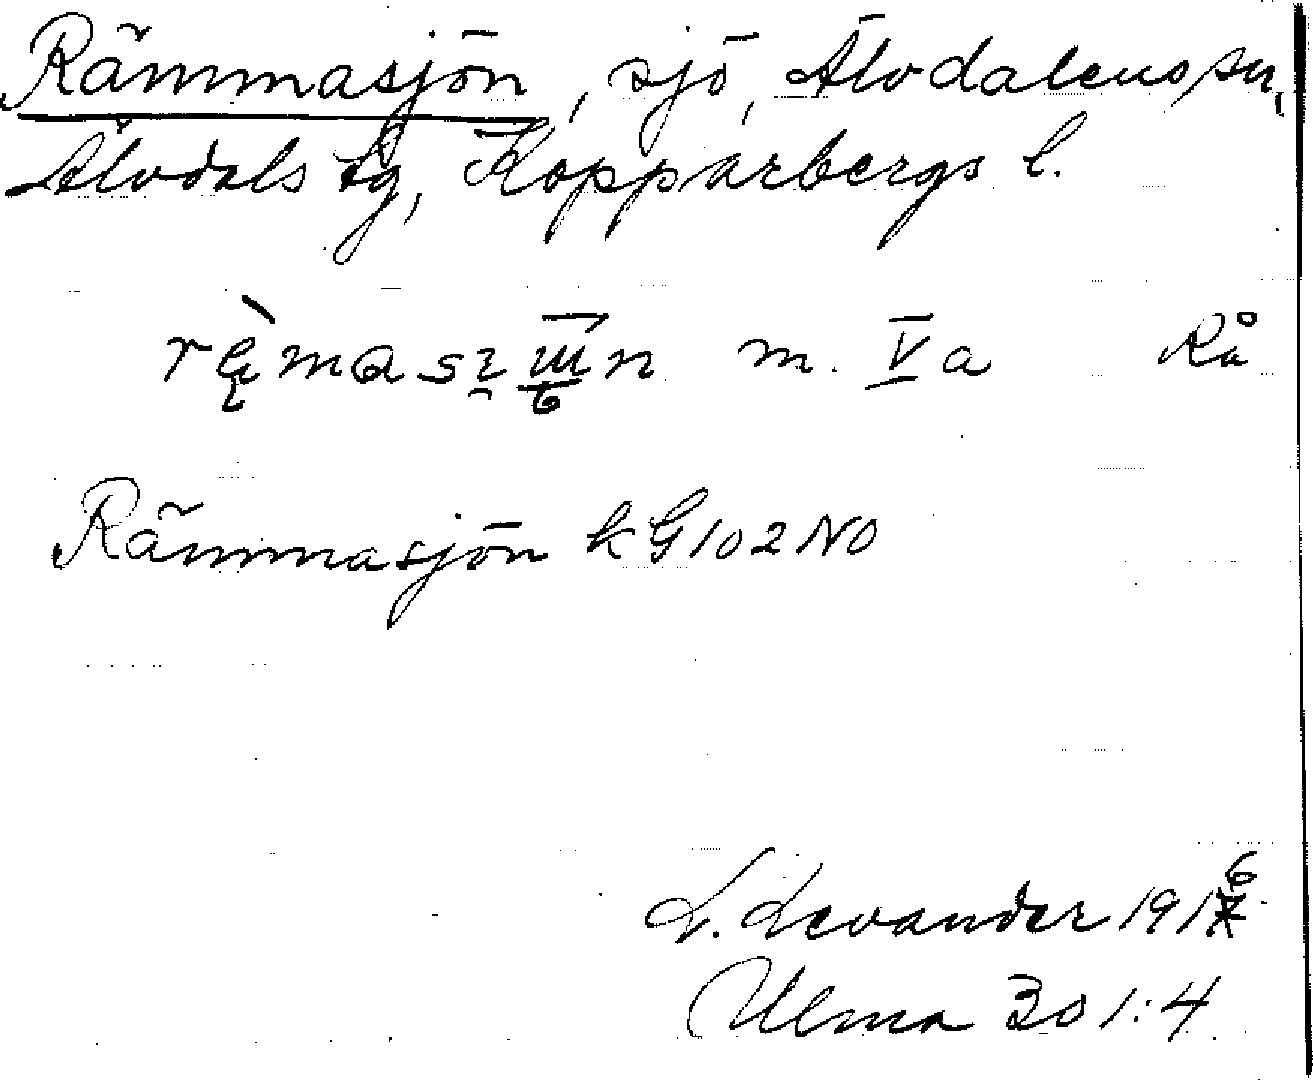 Rämmasjön, sjö, Älvdalens sn,
Älvdals tg, Kopparbergs l.
m. Va Rå
Rämmasjön kG102NO
L. Levander 1916
Ulma 301:4